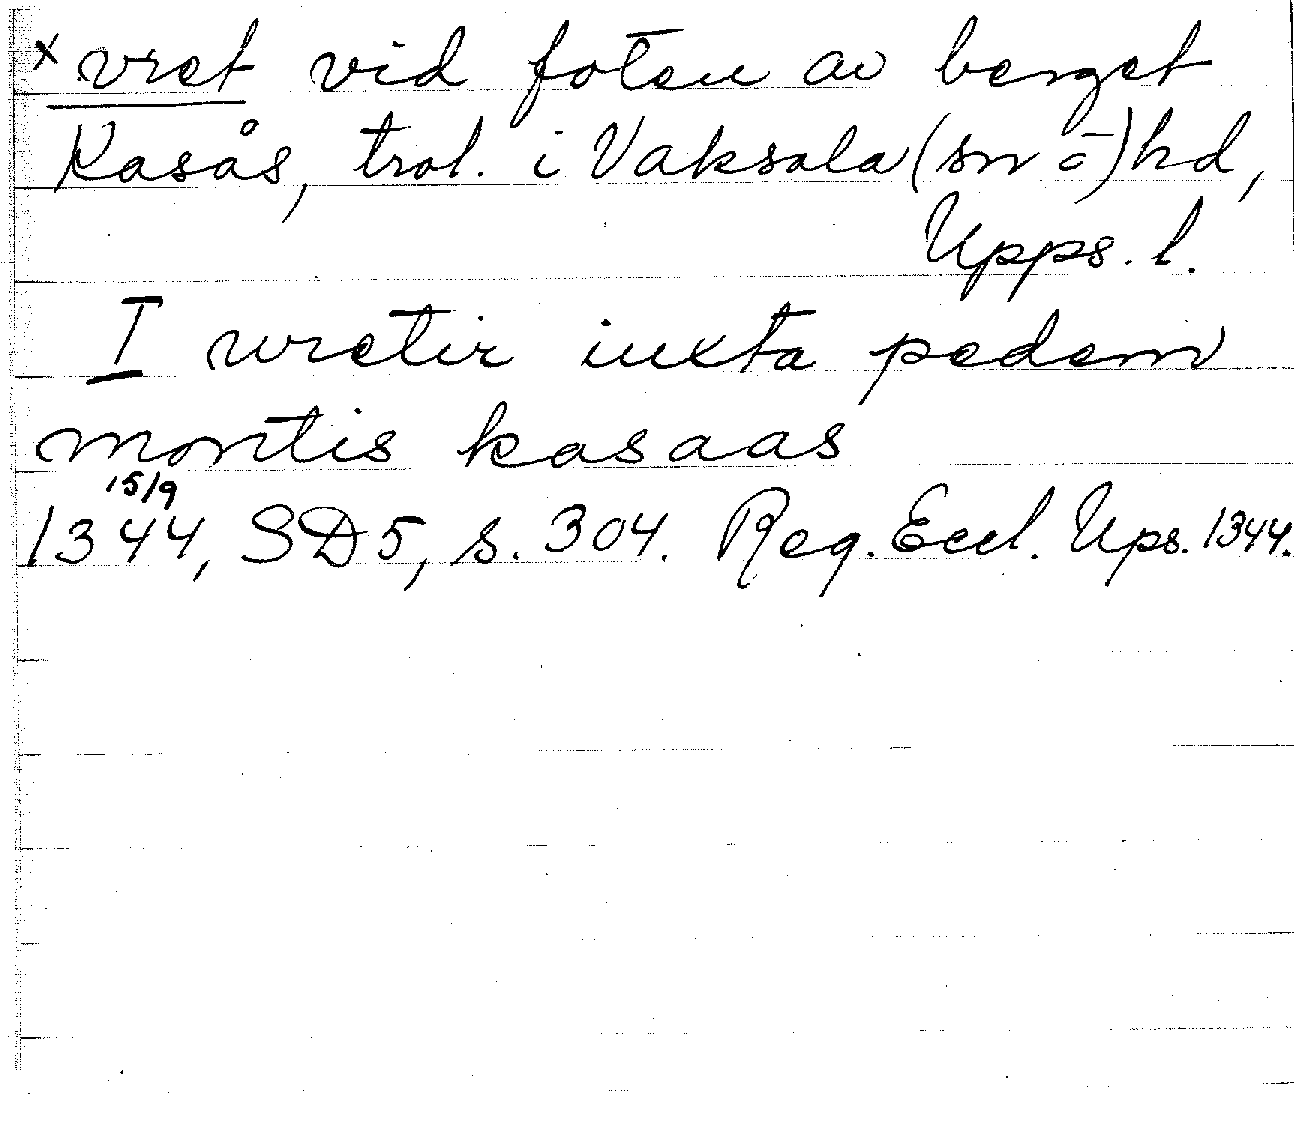 x vret vid foten av berget
Kasås, trol. i Vaksala (sn ō) hd,
Upps. l.
I wretir iuxta pedem
montis kasaas
15/9
1344, SD 5, s. 304. Reg. Eccl. Ups. 1344.